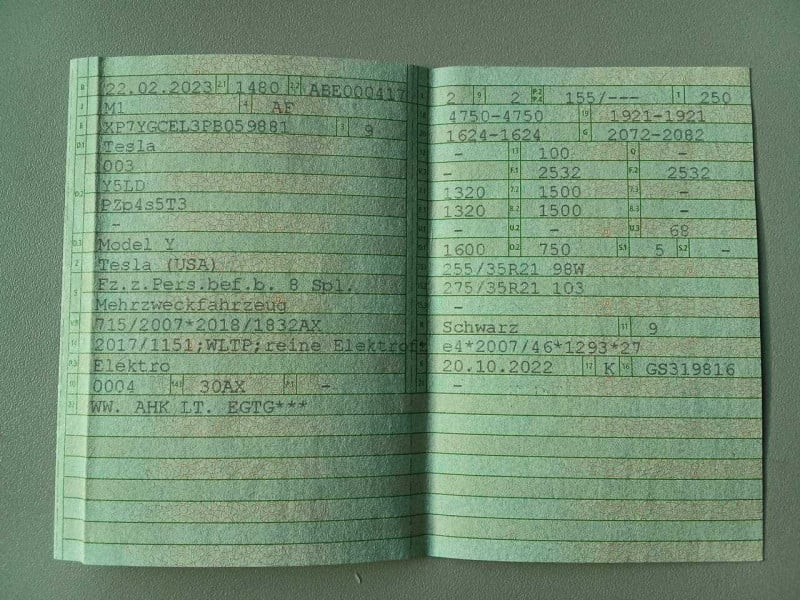 B (22.02.2023 2.1 1480 2.2 ABE000417
J M1 4 AF
E XP7YGCEL3PB059881 3 9
D.1 Tesla
003
D.2 Y5LD
PZp4s5T3
-
D.3 Model Y
2 Tesla (USA)
5 Fz.z.Pers.bef.b. 8 Spl.
Mehrzweckfahrzeug
V.9 715/2007*2018/1832AX
14 2017/1151;WLTP;reine Elektrof
P.3 Elektro
10 0004 14.1 30AX P.1 -
22 WW. AHK LT. EGTG***
L 2 9 2 P.2 P.4 155/--- T 250
18 4750-4750 19 1921-1921
20 1624-1624 G 2072-2082
- 13 100 Q -
- F.1 2532 F.2 2532
1320 7.2 1500 7.3 -
1320 8.2 1500 8.3 -
- U.2 - U.3 68
1600 O.2 750 S.1 5 S.2 -
255/35R21 98W
275/35R21 103
Schwarz 11 9
e4*2007/46*1293*27
20.10.2022 17 K 16 GS319816
-